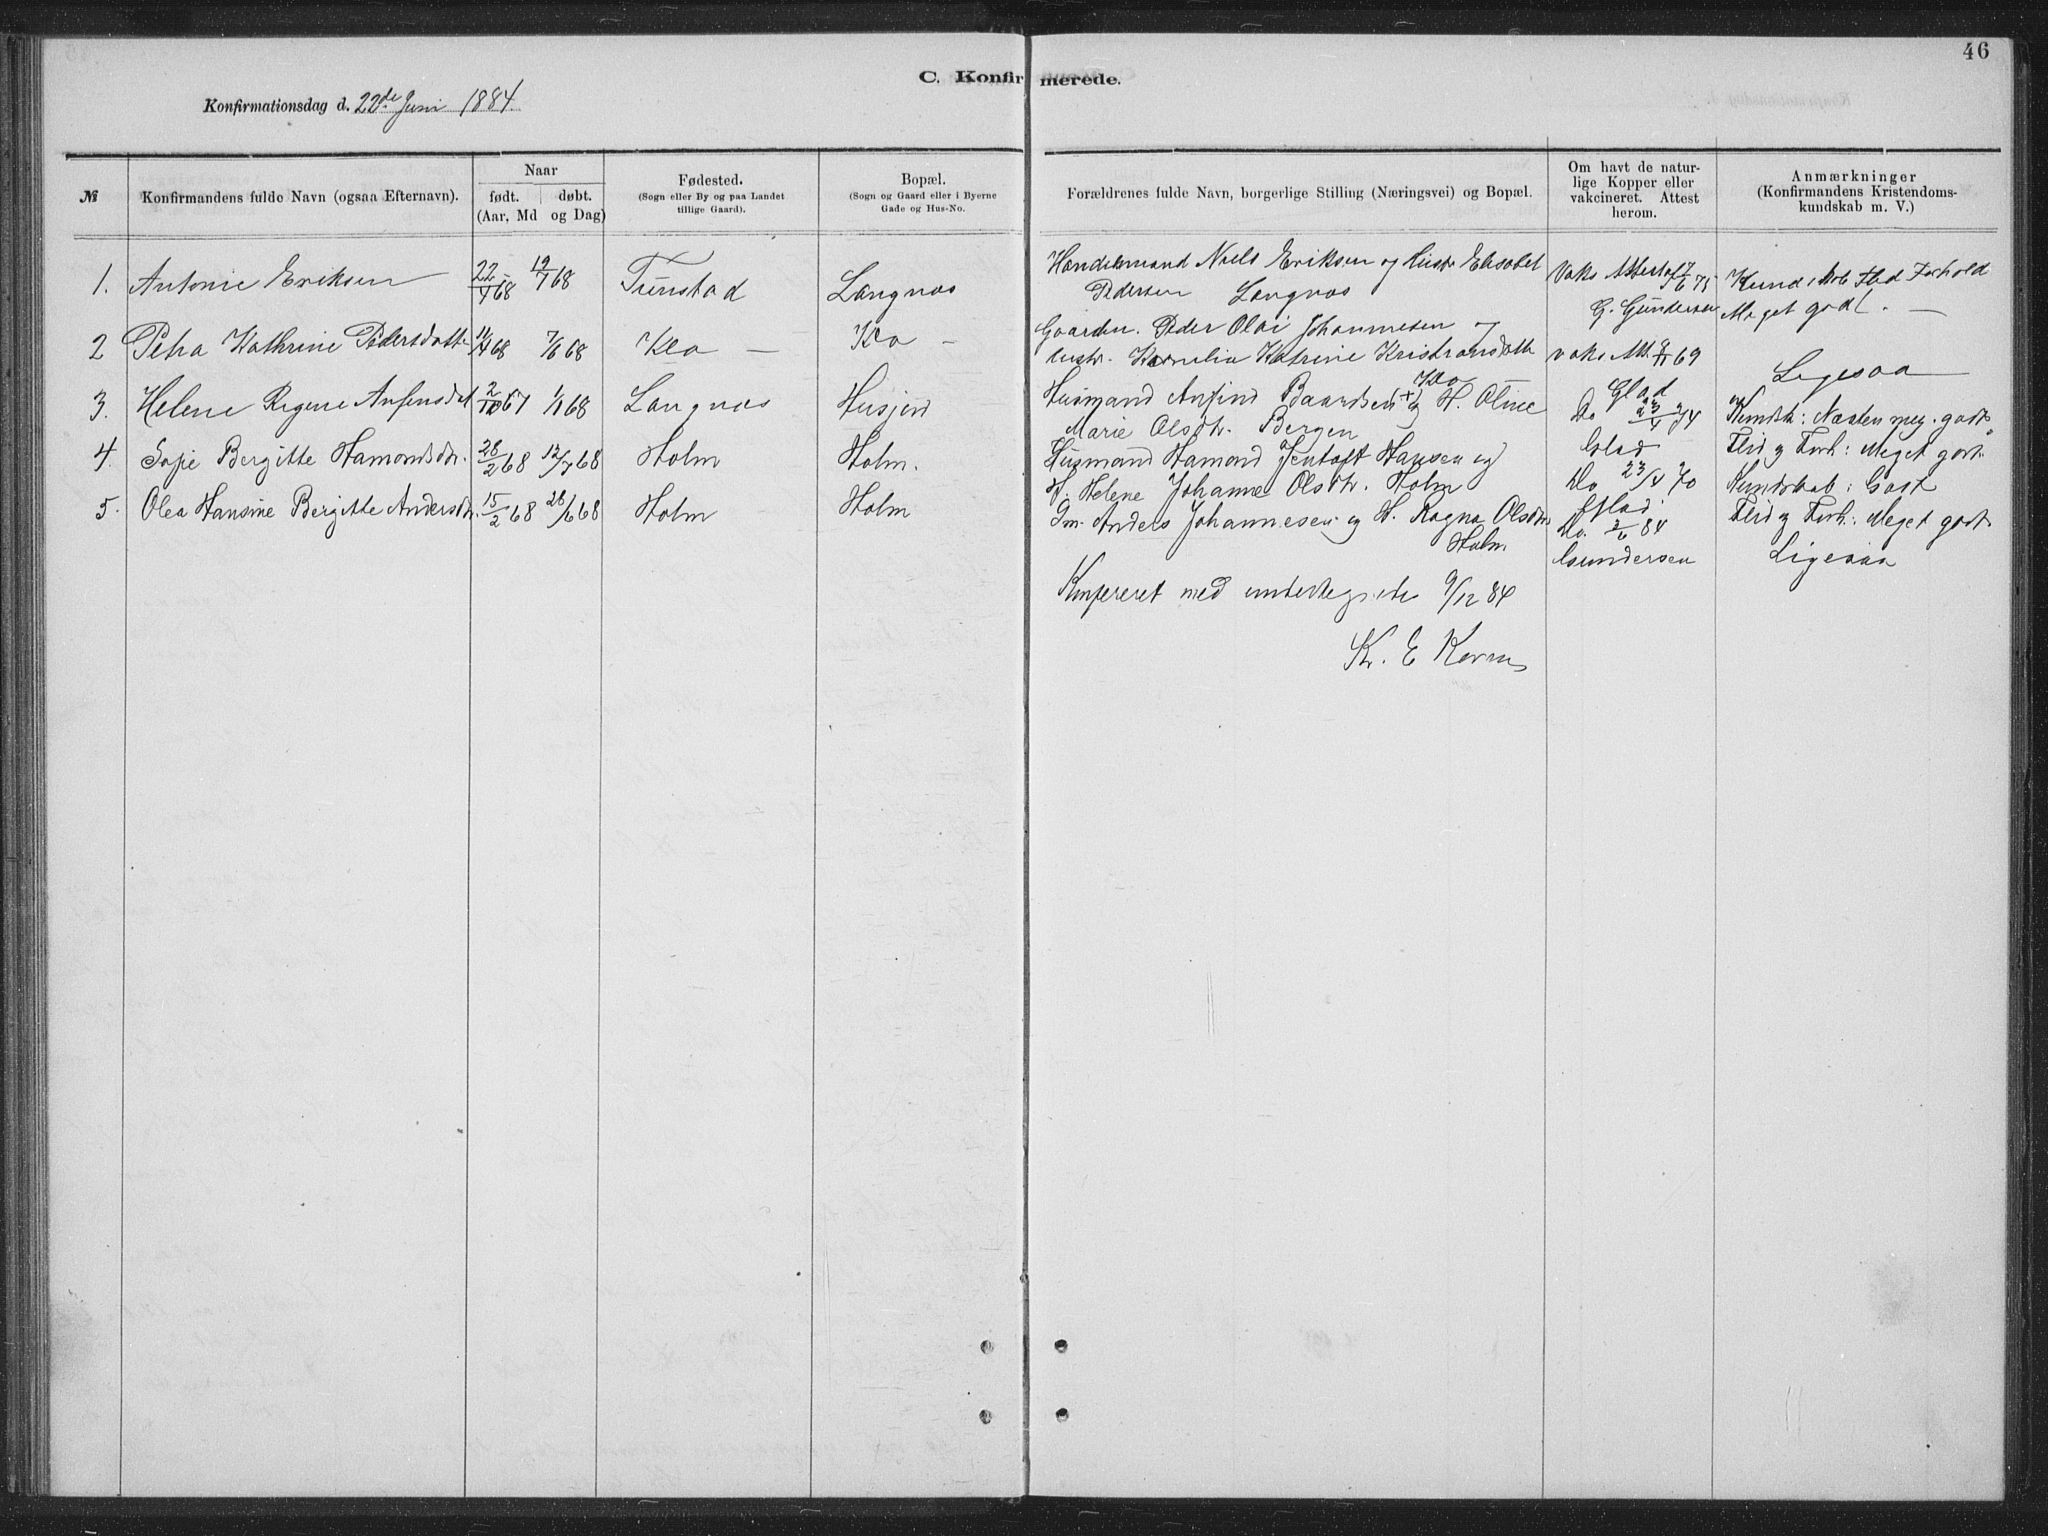 46
C. Konfirmerede.
Konfirmationsdag d. 22de Juni 1884.
№
Konfirmandens fulde Navn (ogsaa Efternavn).
Naar
født. døbt.
(Aar, Md og Dag)
Fødested.
(Sogn eller By og paa Landet
tillige Gaard).
Bopæl.
(Sogn og Gaard eller i Byerne
Gade og Hus-No.
Forældrenes fulde Navn, borgerlige Stilling (Næringsvei) og Bopæl.
Om havt de natur-
lige Kopper eller
vakcineret. Attest
herom.
Anmærkninger
(Konfirmandens Kristendoms-
kundskab m. V.)
1. Antonie Eriksen 22/4 68 19/7 68 Tunstad Langnes
Handelsmand Niels Eriksen og Hustr Elisabet
Pedersen Langnes
Vaks Attest af 7/6 75
G. Gundersen
Kund Flid Forhold
Meget godt. —
2 Petra Kathrine Pedersdatte 11/4 68 7/6 68 Klo — Klo —
Gaardm. Peder Olai Johannesen og
hustr. Kornelia Katrine Kristiansdatte
Klo
vaks Att. 9/11 69
Glad
Ligesaa
3. Helene Regine Anfinsdat 2/10 67 1/1 68 Langnes Husjord
Husmand Anfind Baardsen og H. Oline
Marie Olsdtr. Bergen
Do 23/4 74
Glad
Kundsk: Næsten meg. godt
Flid og Forh: Meget godt
4. Sofie Bergitte Hamondsdtr. 28/2 68 12/7 68 Holm Holm.
Husmand Hamond Jentoft Hansen og
H. Helene Johanne Olsdtr. Holm
Do 23/4 70
Glad
Kundskab: Godt
Flid og Forh.: Meget godt
5. Olea Hansine Bergitte Andersdtr. 15/2 68 28/6 68 Holm Holm
Gm. Anders Johannesen og H. Ragna Olsdtr
Holm
Do. 2/6 84
Gundersen
Ligesaa
Konfereret med undertegnede 9/12 84
Kr. E